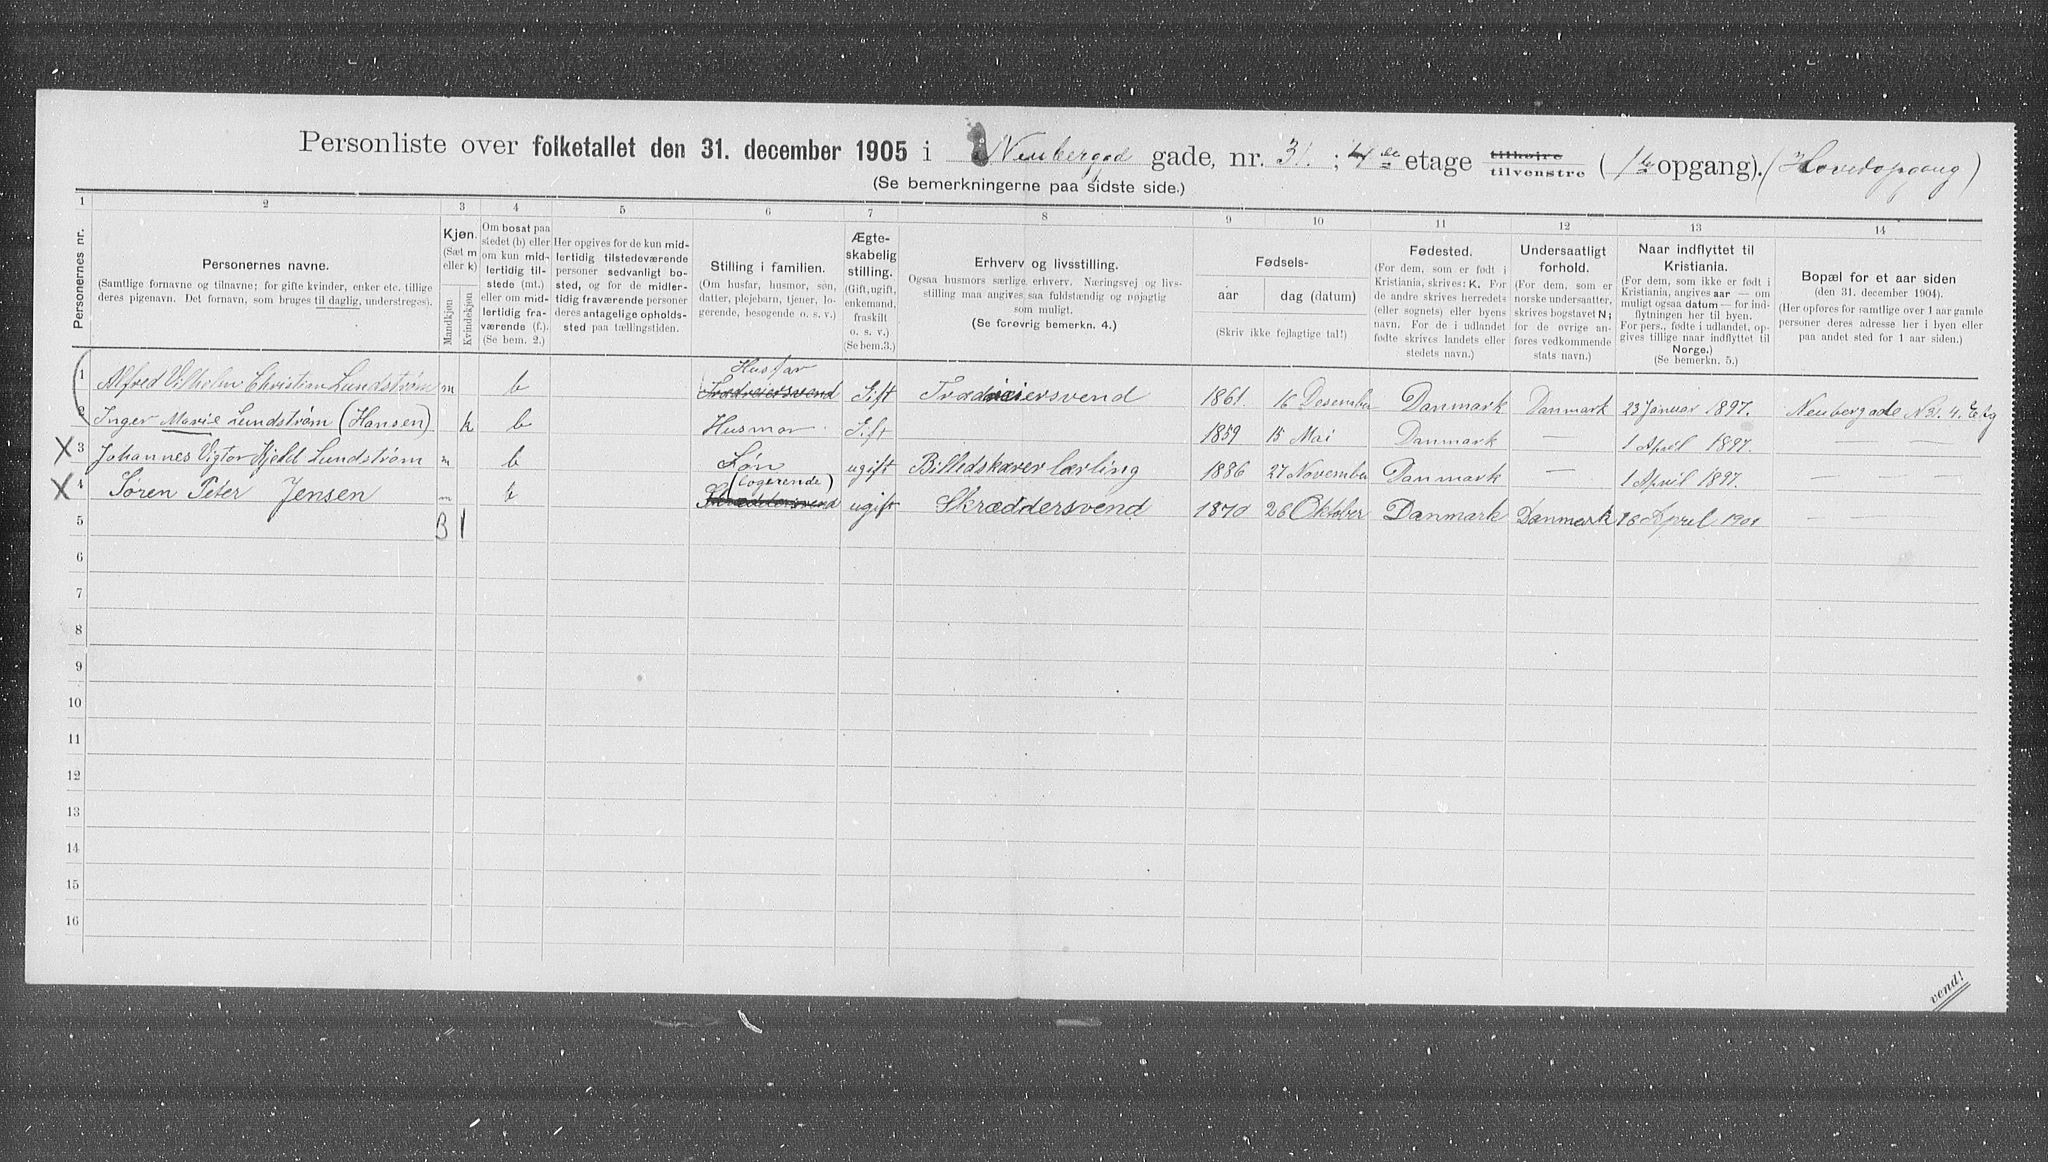 Personliste over folketallet den 31. december 1905 i Neubergad gade, nr. 31. ; 4 de etage tilhøire tilvenstre ( 1ste opgang). (Hovedopgang)
(Se bemerkningerne paa sidste side.)
1 2 3 4 5 6 7 8 9 10 11 12 13 14
Personernes nr.
Personernes navne.
(Samtlige fornavne og tilnavne; for gifte kvinder, enker etc. tillige
deres pigenavn. Det fornavn, som bruges til daglig, understreges).
Kjøn.
(Sæt m
eller k)
Mandkjøn
Kvindekjøn
Om bosat paa
stedet (b) eller
om kun mid-
lertidig til-
stede (mt.)
eller om mid-
lertidig fra-
værende (f.).
(Se bem. 2.)
Her opgives for de kun mid-
lertidig tilstedeværende
personer sedvanligt bo-
sted, og for de midler-
tidig fraværende personer
deres antagelige opholds-
sted paa tællingstiden.
Stilling i familien.
(Om husfar, husmor, søn,
datter, plejebarn, tjener, lo-
gerende, besøgende o. s. v.)
Ægte-
skabelig
stilling.
(Gift, ugift,
enkemand,
fraskilt
o. s. v.)
(Se bem.3.)
Erhverv og livsstilling.
Ogsaa husmors særlige erhverv. Næringsvej og livs-
stilling maa angives saa fuldstændig og nøjagtig
som muligt.
(Se forøvrig bemerkn. 4.)
Fødsels-
aar
dag (datum)
(Skriv ikke fejlagtige tal!)
Fødested.
(For dem, som er født i
Kristiania, skrives: K. For
de andre skrives herredets
(eller sognets) eller byens
navn. For de i udlandet
fødte skrives landets eller
stedets navn.)
Undersaatligt
forhold.
(For dem, som er
norske undersaatter,
skrives bogstavet N;
for de øvrige an-
føres vedkommende
stats navn.)
Naar indflyttet til
Kristiania.
(For dem, som ikke er født i
Kristiania, angives aar — om
muligt ogsaa datum — for ind-
flytningen her til byen.
For pers., fødte i udlandet, op-
gives tillige naar indflyttet til
Norge.)
(Se bemerkn. 5.)
Bopæl for et aar siden
(den 31. december 1904).
(Her opføres for samtlige over 1 aar gamle
personer deres adresse her i byen eller
paa andet sted for 1 aar siden.)
1 Alfred Vilhelm Christian Lundstrøm m b Husfar Trædreiersvend Gift Trædreiersvend 1861 16 Desember Danmark Danmark 23 Januar 1897. Neubergade N 31. 4. Etg
2 Inger Marie Lundstrøm (Hansen) k b Husmor Gift 1859 15 Mai Danmark — 1 April 1897. — —
X 3 Johannes Vigtor Kjeld Lundstrøm m b Søn ugift Billedskærer lærling 1886 27 November Danmark — 1 April 1897. — — —
X 4 Søren Peter Jensen m b (Logerende) Skræddersvend ugift Skræddersvend 1870 26 Oktober Danmark Danmark 16 April 1901 — —
5 3 1
6
7
8
9
10
11
12
13
14
15
16
vend!